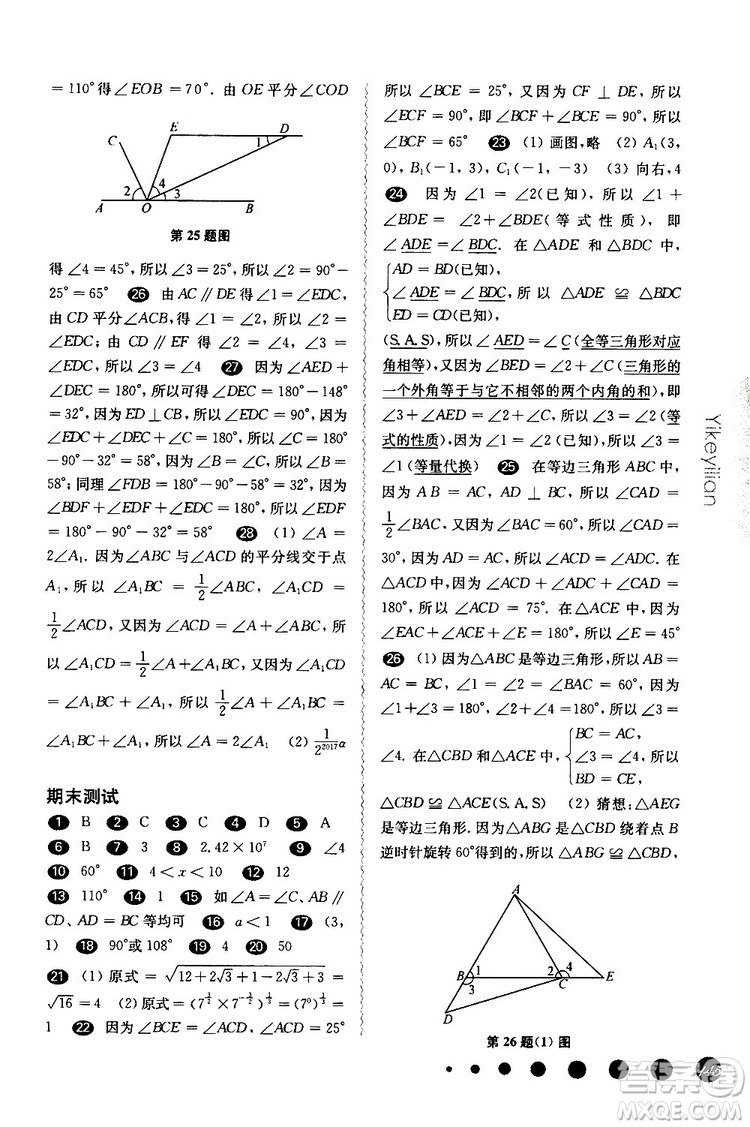 = 110°得∠EOB = 70°. 由 OE 平分∠COD
C E D 1
2 4 3
A O B
第 25 题图
得∠4 = 45°, 所以∠3 = 25°, 所以∠2 = 90°-
25° = 65° 26 由 AC // DE 得∠1 = ∠EDC,
由 CD 平分∠ACB, 所以∠1 = ∠2, 所以∠2 =
∠EDC; 由 CD // EF 得∠2 = ∠4, ∠3 =
∠EDC, 所以∠3 = ∠4 27 因为∠AED +
∠DEC = 180°, 所以可得∠DEC = 180° - 148°
= 32°, 因为 ED ⊥ CB, 所以∠EDC = 90°, 因为
∠EDC + ∠DEC + ∠C = 180°, 所以∠C = 180°
- 90° - 32° = 58°, 因为∠B = ∠C, 所以∠B =
58°; 同理∠FDB = 90° - 58° = 32°, 因为
∠BDF + ∠EDF + ∠EDC = 180°, 所以∠EDF
= 180° - 90° - 32° = 58° 28 (1) ∠A =
2∠A₁. 因为∠ABC 与∠ACD 的平分线交于点
A₁, 所以∠A₁BC = 1/2∠ABC, ∠A₁CD =
1/2∠ACD, 又因为∠ACD = ∠A + ∠ABC, 所
以∠A₁CD = 1/2∠A + 1/2∠ABC, 又因为
∠A₁CD = ∠A₁BC + ∠A₁, 所以 1/2∠A +
∠A₁BC = ∠A₁BC + ∠A₁, 所以∠A = 2∠A₁ (2) 1/2²⁰¹⁷ α
期末测试
1 B 2 C 3 C 4 D 5 A
6 B 7 3 8 2.42 × 10⁷ 9 ∠4
10 60° 11 4 < x < 10 12 12
13 110° 14 1 15 如∠A = ∠C、AB //
CD、AD = BC 等均可 16 a < 1 17 (3,
1) 18 90°或 108° 19 4 20 50
21 (1) 原式 = √(12 + 2√3 + 1 - 2√3 + 3) =
√16 = 4 (2) 原式 = (7^(1/2) × 7^(-1/2))^(1/3) = (7⁰)^(1/3) =
1 22 因为∠BCE = ∠ACD, ∠ACD = 25°
所以∠BCE = 25°, 又因为 CF ⊥ DE, 所以
∠ECF = 90°, 即∠BCF + ∠BCE = 90°, 所以
∠BCF = 65° 23 (1) 画图, 略 (2) A₁(3,
0), B₁(-1, 3), C₁(-1, -1) (3) 向右, 4
24 因为∠1 = ∠2(已知), 所以∠1 +
∠BDE = ∠2 + ∠BDE(等式性质), 即
∠ADE = ∠BDC. 在△ADE 和△BDC 中,
AD = BD(已知),
∠ADE = ∠BDC, 所以△ADE ≌ △BDC
ED = CD(已知),
(S.A.S), 所以∠AED = ∠C(全等三角形对应
角相等), 又因为∠BED = ∠2 + ∠C(三角形的
一个外角等于与它不相邻的两个内角的和), 即
∠3 + ∠AED = ∠2 + ∠C, 所以∠3 = ∠2(等
式的性质), 又因为∠1 = ∠2(已知), 所以∠3 =
∠1(等量代换) 25 在等边三角形 ABC 中,
因为 AB = AC, AD ⊥ BC, 所以∠CAD =
1/2∠BAC, 又因为∠BAC = 60°, 所以∠CAD =
30°, 因为 AD = AC, 所以∠ACD = ∠ADC. 在
△ACD 中, 因为∠CAD + ∠ADC + ∠ACD =
180°, 所以∠ACD = 75°, 在△ACE 中, 因为
∠EAC + ∠ACE + ∠E = 180°, 所以∠E = 45°
26 (1) 因为△ABC 是等边三角形, 所以 AB =
AC = BC, ∠ACB = ∠BAC = 60°, 因为
∠1 + ∠3 = 180°, ∠2 + ∠4 = 180°, 所以∠3 =
∠4. 在△CBD 和△ACE 中, BC = AC,
∠3 = ∠4, 所以
BD = CE,
△CBD ≌ △ACE(S.A.S) (2) 猜想: △AEG
是等边三角形. △ABG 是△CBD 绕着点 B
逆时针旋转 60°得到的, 所以△ABG ≌ △CBD,
A
B 1 2 4 C E
3
D
第 26 题(1)图
Yikeyilian
145
答案圈
MXQE.COM